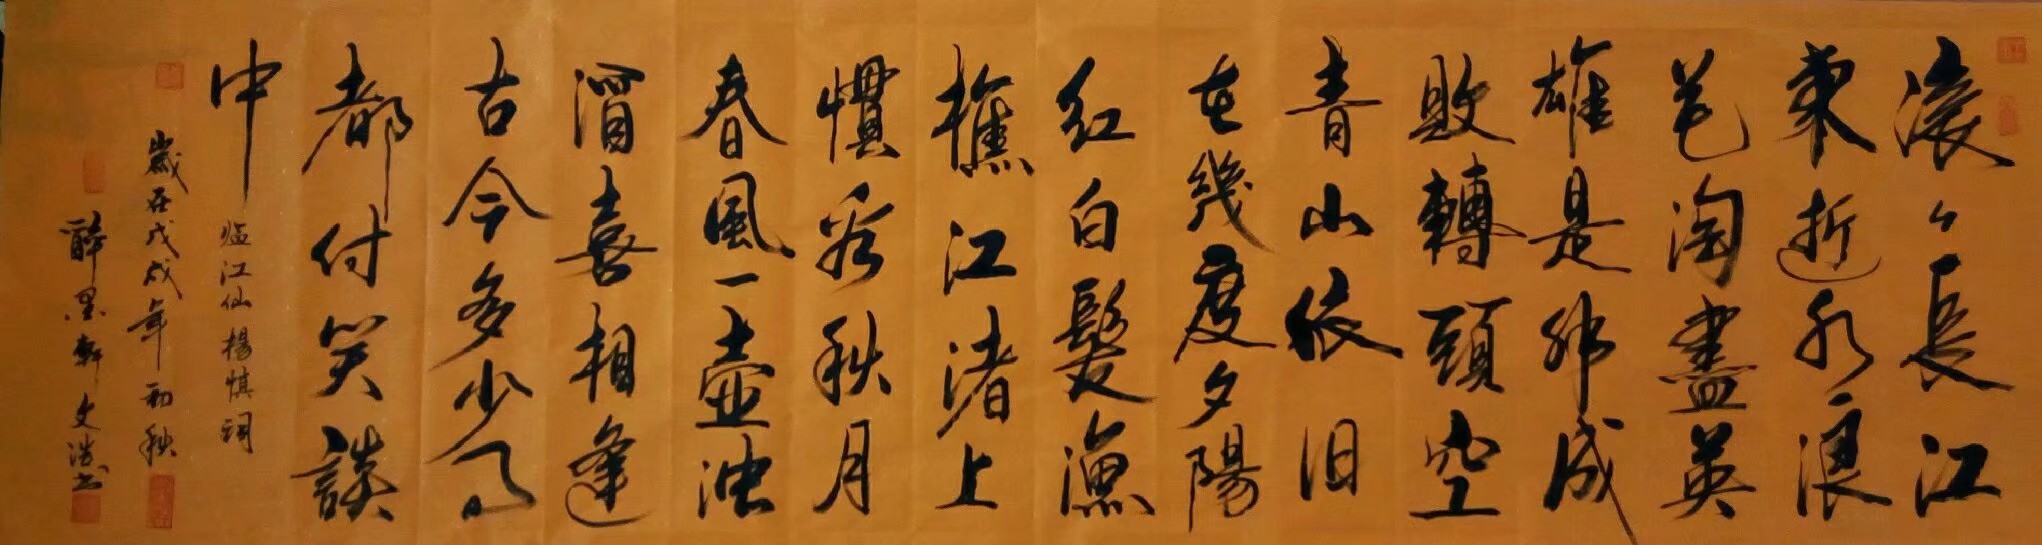 滚々長江
東逝水浪
花淘盡英
雄是非成
敗轉頭空
青山依旧
在幾度夕陽
紅白髮漁
樵江渚上
慣看秋月
春風一壶浊
酒喜相逢
古今多少事
都付笑談
中
临江仙楊慎词
歲在戊戌年初秋
醉墨軒文浩书